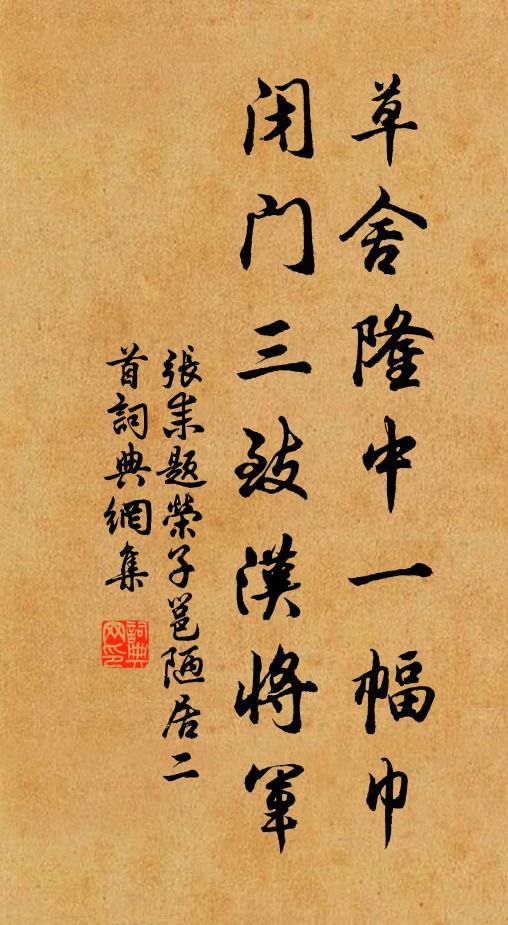 草舍隆中一幅巾
闭门三致漢將軍
張耒题榮子邕陋居二
首詞典網集
詞典網印